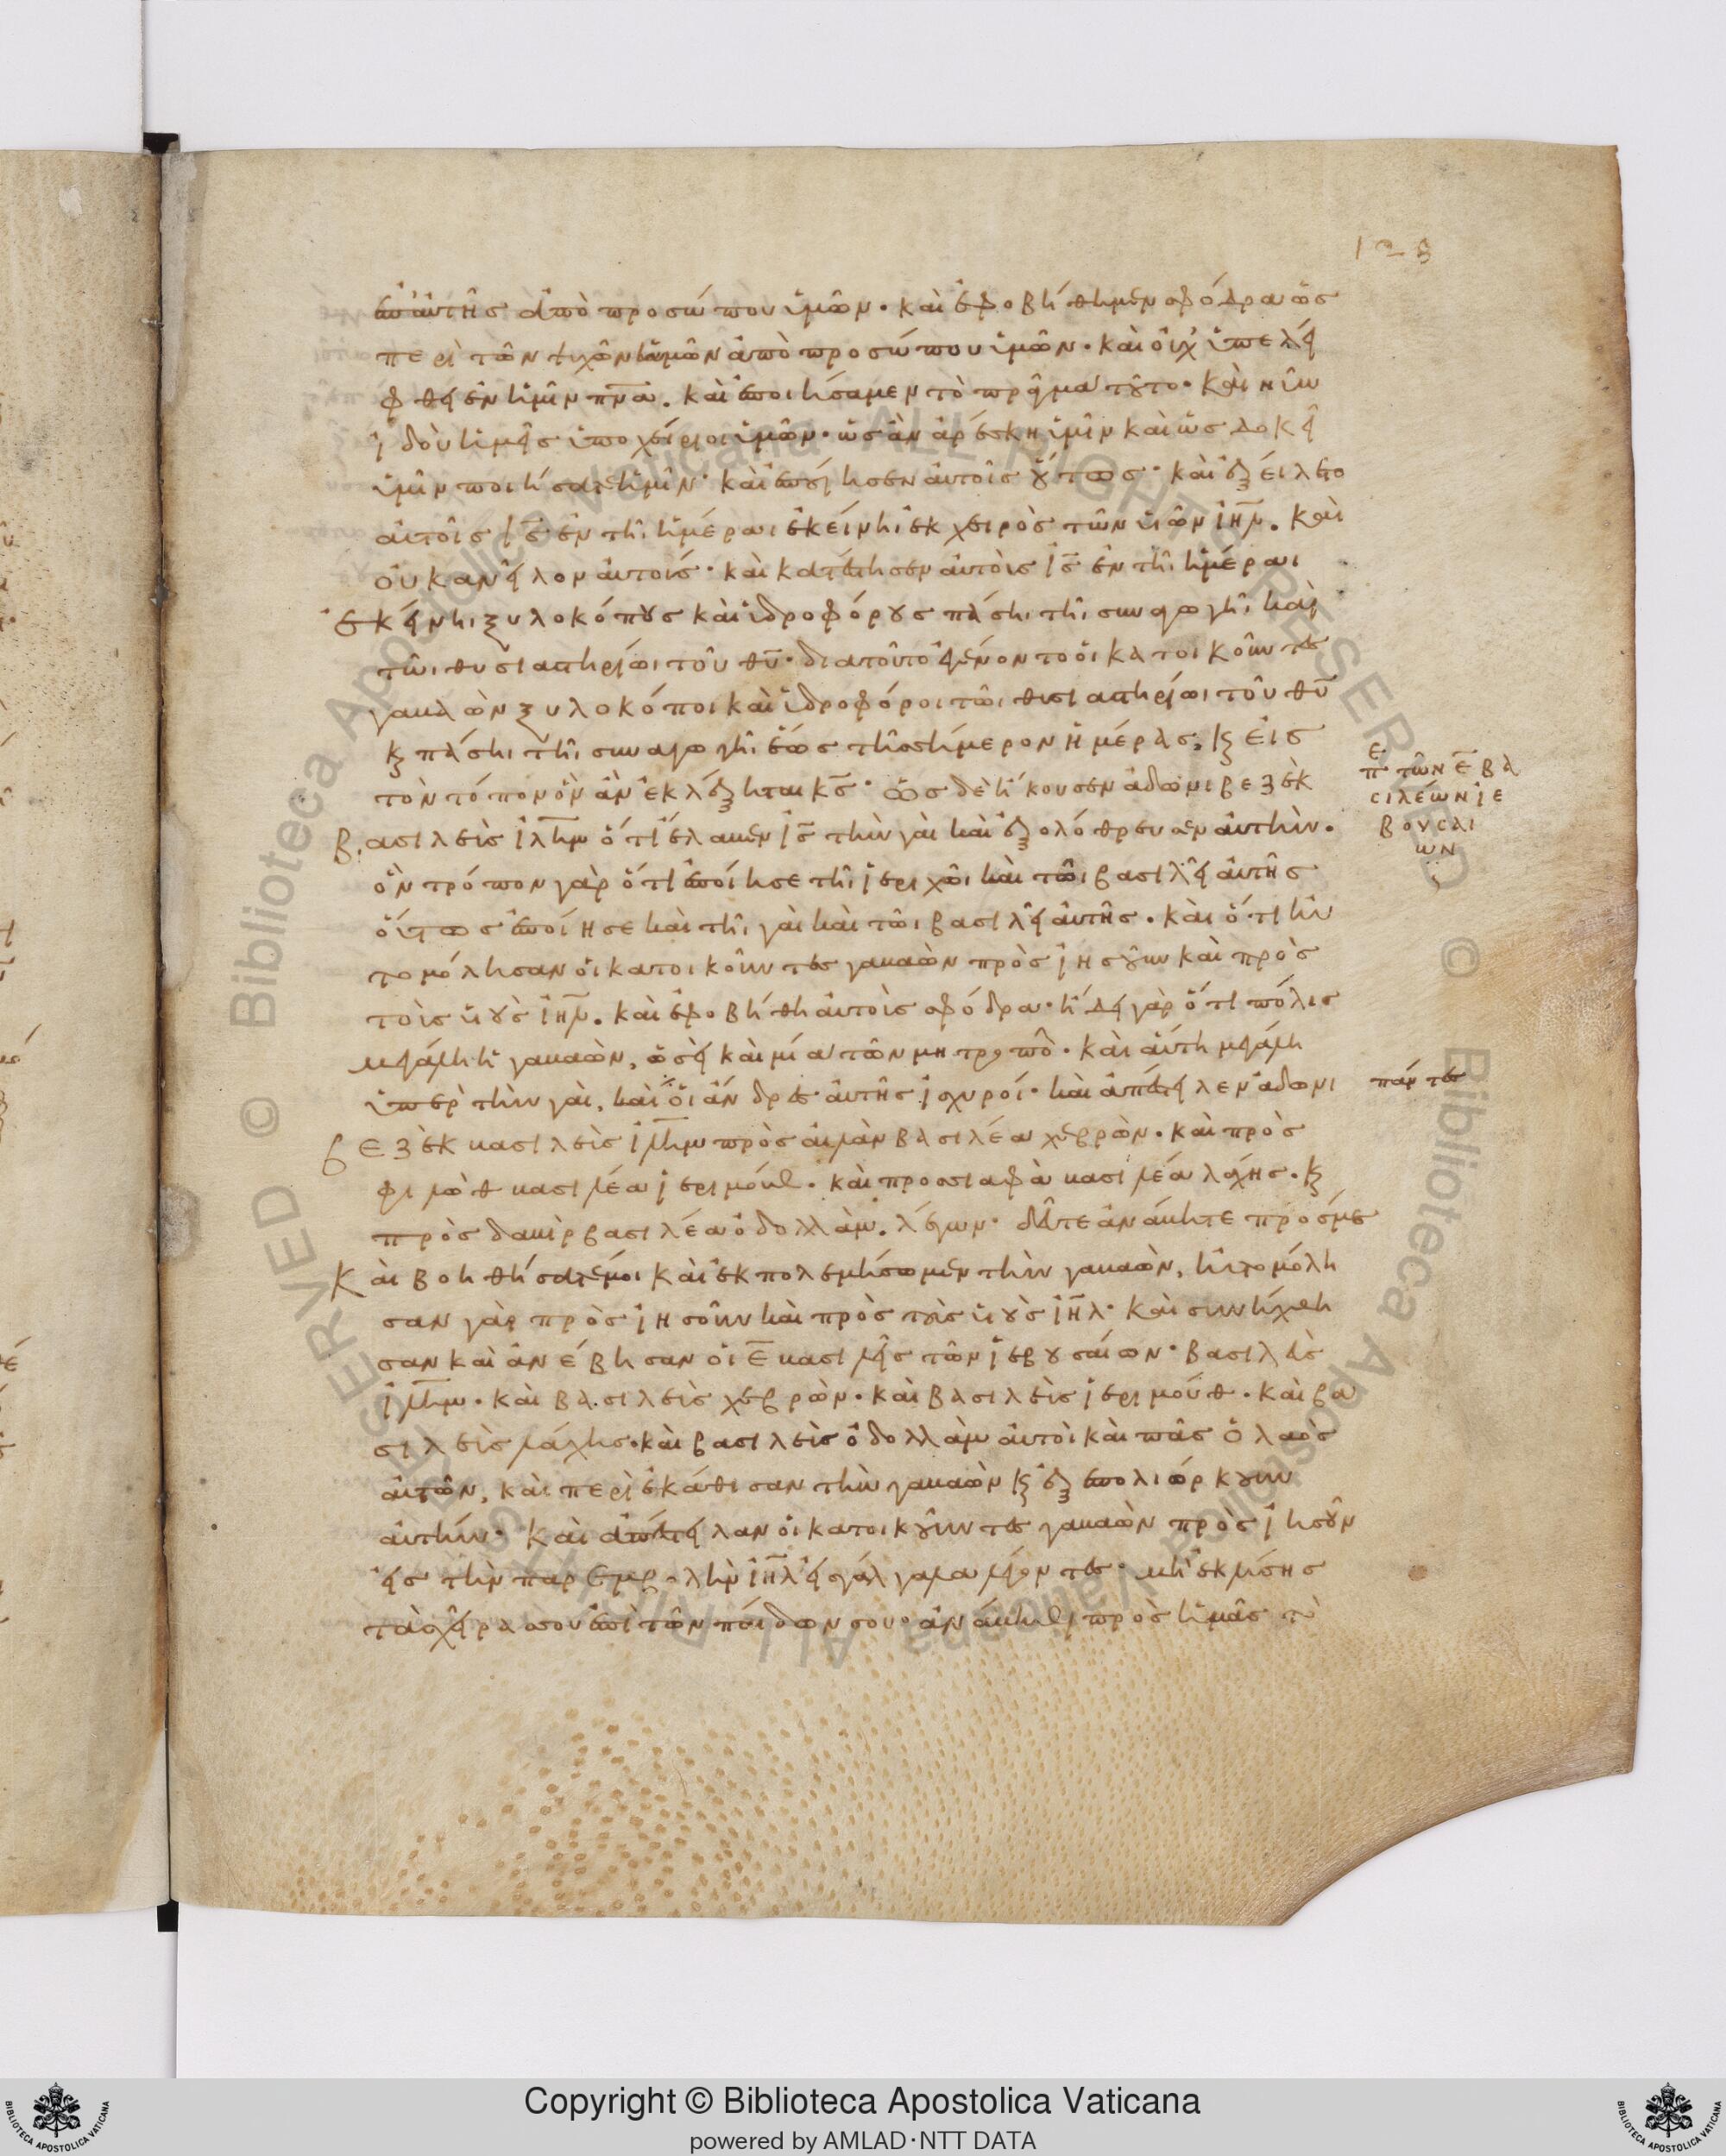 ἐπ' αὐτῆς ἀπὸ προσώπου ὑμῶν· καὶ ἐφοβήθημεν σφόδρα ὡς
περὶ τῶν ψυχῶν ἡμῶν ἀπὸ προσώπου ὑμῶν· καὶ οὐχ ὑπελεί
φθη ἐν ἡμῖν πν̅α. καὶ ἐποιήσαμεν τὸ πρᾶγμα τοῦτο· καὶ νῦν
ἰδοὺ ἡμεῖς ὑποχείριοι ὑμῶν· ὡς ἂν ἀρέσκη ὑμῖν καὶ ὡς δοκεῖ
ὑμῖν ποιήσατε ἡμῖν· καὶ ἐποίησεν αὐτοῖς οὕτως· καὶ ἐξείλετο
αὐτοὺς ι̅ς̅ ἐν τῆι ἡμέραι ἐκείνηι ἐκ χειρὸς τῶν υἱῶν ι̅η̅λ. καὶ
οὐκ ἀνεῖλον αὐτούς· καὶ κατέστησεν αὐτοὺς ι̅ς̅ ἐν τῆι ἡμέραι
ἐκείνηι ξυλοκόπους καὶ ὑδροφόρους πάσηι τῆι συναγωγῆι καὶ
τῶι θυσιαστηρίωι τοῦ θ̅υ̅· διατοῦτο ἐγένοντο οἱ κατοικοῦντες
γαβαὼν ξυλοκόποι καὶ ὑδροφόροι τῶι θυσιαστηρίωι τοῦ θ̅υ̅
κ̀ πάσηι τῆι συναγωγῆι ἕως τῆς σήμερον ἡμέρας, κ̀ εἰς
τὸν τόπον ὃν ἂν ἐκλέξηται κ̅ς̅· ὡς δὲ ἤκουσεν ἀδωνιβεζὲκ
βασιλεὺς ι̅λ̅η̅μ ὅτι ἔλαβεν ι̅ς̅ τὴν γαὶ καὶ ἐξολόθρευσεν αὐτήν.
ὃν τρόπον γὰρ ὅτι ἐποίησε τῆι ἱεριχῶι καὶ τῶι βασιλεῖ αὐτῆς
οὕτως ἐποίησε καὶ τῆι γαὶ καὶ τῶι βασιλεῖ αὐτῆς. καὶ ὅτι ηὐ
τομόλησαν οἱ κατοικοῦντες γαβαὼν πρὸς ἰησοῦν καὶ πρὸς
τοὺς υἱοὺς ι̅η̅λ. καὶ ἐφοβήθη αὐτοὺς σφόδρα· ἤδει γὰρ ὅτι πόλις
μεγάλη ἡ γαβαὼν, ὡσεὶ καὶ μία τῶν μητροπο̂· καὶ αὕτη μεγάλη
ὑπὲρ τὴν γαὶ, καὶ οἱ ἄνδρες αὐτῆς ἰσχυροί· καὶ ἀπέστειλεν ἀδωνι
πάντες
βεζὲκ βασιλεὺς ι̅λ̅η̅μ πρὸς αἰλὰμ βασιλέα χεβρὼν. καὶ πρὸς
φιλὼθ βασιλέα ἱεριμούθ. καὶ προσιαφὰ βασιλέα λαχῆς. κ̀
πρὸς δαβὶρ βασιλέα ὀδολλὰμ. λέγων· δεῦτε ἀνάβητε πρός με
καὶ βοηθήσατέ μοι καὶ ἐκπολεμήσωμεν τὴν γαβαὼν, ηὐτομόλη
σαν γὰρ πρὸς ἰησοῦν καὶ πρὸς τοὺς υἱοὺς ι̅η̅λ· καὶ συνήχθη
σαν καὶ ἀνέβησαν οἱ ε̅ βασιλεῖς τῶν ἱεβουσαίων· βασιλεὺς
ι̅λ̅η̅μ. καὶ βασιλεὺς χεβρὼν. καὶ βασιλεὺς ἱεριμούθ. καὶ βα
σιλεὺς λάχης. καὶ βασιλεὺς ὀδολλὰμ αὐτοὶ καὶ πᾶς ὁ λαὸς
αὐτῶν, καὶ περιεκάθισαν τὴν γαβαὼν κ̀ ἐξεπολιόρκουν
αὐτήν· καὶ ἀπέστειλαν οἱ κατοικοῦντες γαβαὼν πρὸς ἰησοῦν
εἰς τὴν παρεμβολὴν ι̅η̅λ εἰς γάλγαλα λέγοντες· μὴ ἐκλύσης
τὰς χεῖρας σου ἐπὶ τῶν παίδων σου· ἀνάβηθι πρὸς ἡμᾶς τὸ
πε τῶν ε̅ βα
σιλέων ἰε
βουσαι
ων